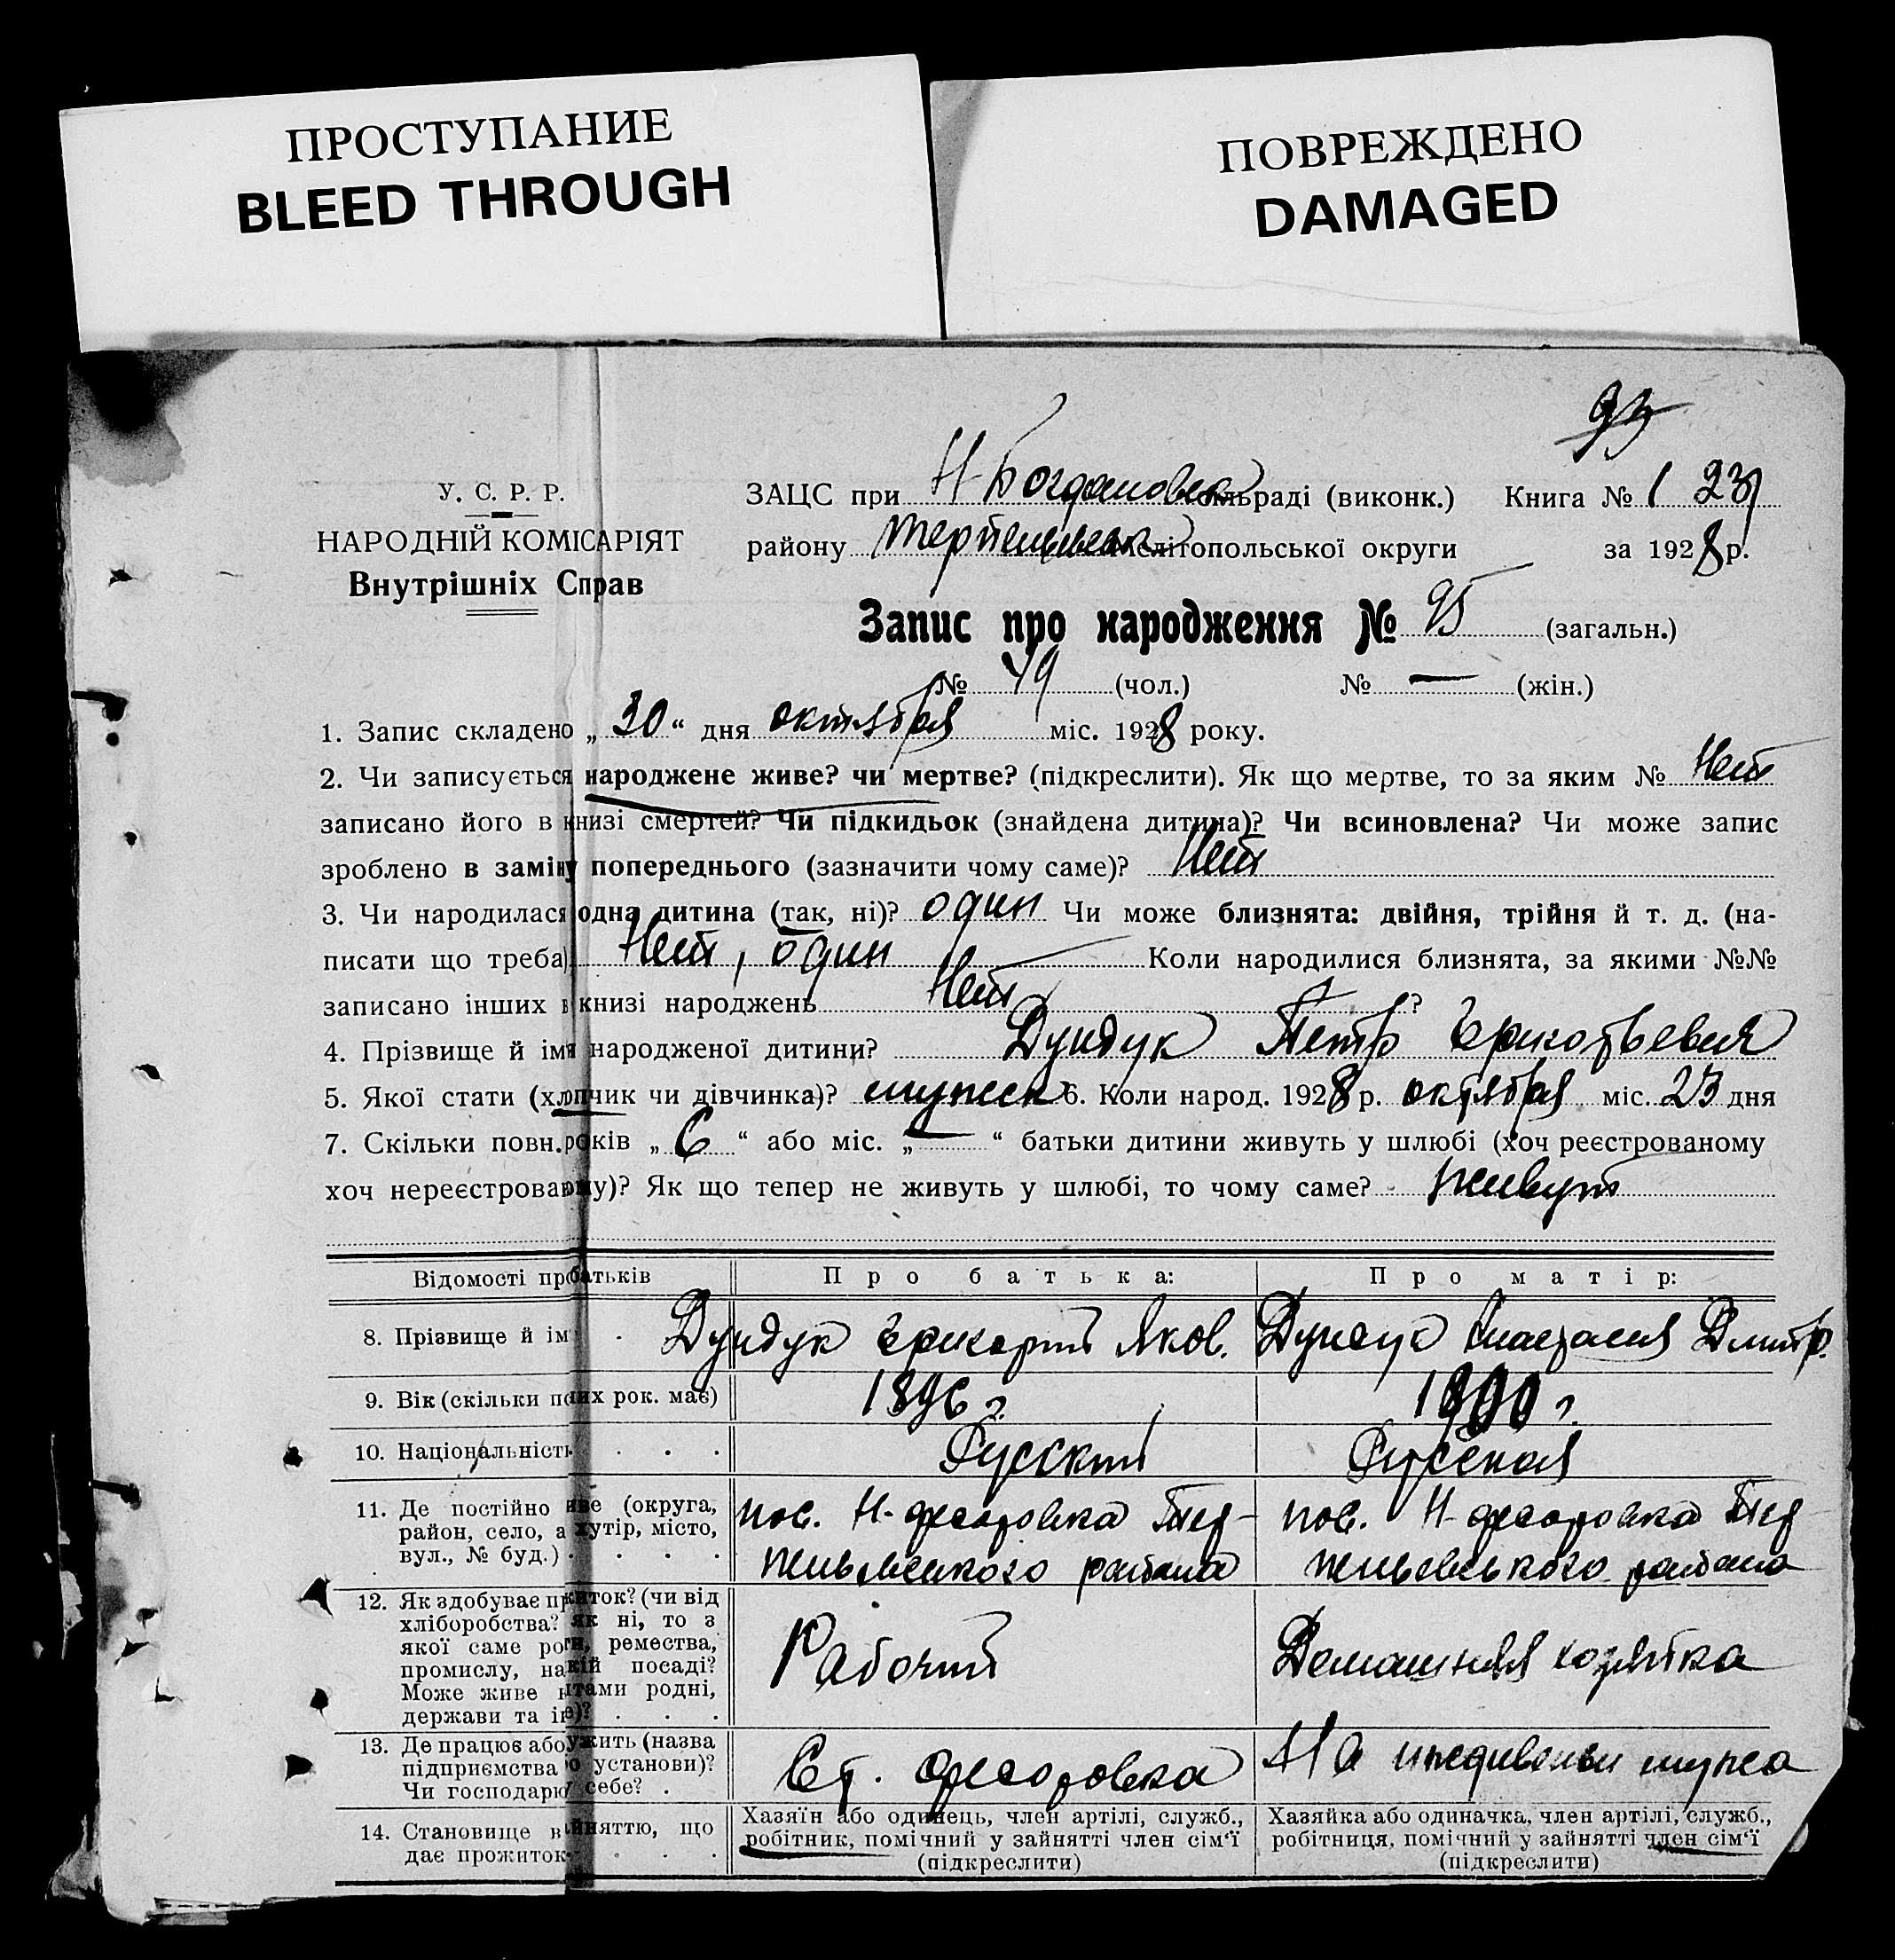 ПРОСТУПАНИЕ
BLEED THROUGH
ПОВРЕЖДЕНО
DAMAGED
93
У. С. Р. Р.
НАРОДНІЙ КОМІСАРІЯТ
Внутрішніх Справ
ЗАЦС при Н-Богдановск сільраді (виконк.) Книга № 1 23
району Терпеньевск Мелітопольської округи за 1928 р.
Запис про народження № 95 (загальн.)
№ 49 (чол.) № — (жін.)
1. Запис складено „ 30 “ дня октября міс. 1928 року.
2. Чи записується народжене живе? чи мертве? (підкреслити). Як що мертве, то за яким № Нет
записано його в книзі смертей? Чи підкидьок (знайдена дитина)? Чи всиновлена? Чи може запис
зроблено в заміну попереднього (зазначити чому саме)? Нет
3. Чи народилася одна дитина (так, ні)? один Чи може близнята: двійня, трійня й т. д. (на-
писати що треба) Нет, один Коли народилися близнята, за якими №№
записано інших в книзі народжень Нет ?
4. Прізвище й імя народженої дитини? Дундук Петр
5. Якої стати (хлопчик чи дівчинка)? мужск 6. Коли народ. 1928 р. октября міс. 23 дня
7. Скільки повн. років „ 6 “ або міс. „ — “ батьки дитини живуть у шлюбі (хоч реєстрованому
хоч нереєстрованому)? Як що тепер не живуть у шлюбі, то чому саме? живут
Відомості про батьків Про батька: Про матір:
8. Прізвище й ім Дундук Яков. Дундук Анастасия Дмитр.
9. Вік (скільки повних рок. має) 1896 г. 1900 г.
10. Національність Русский Русская
11. Де постійно живе (округа,
район, село, а хутір, місто,
вул., № буд.)
пос. Н-федоровка Тер-
пеньевского района
пос. Н-федоровка Тер-
пеньевского района
12. Як здобуває прожиток? (чи від
хліборобства? Як ні, то з
якої саме роги, ремества,
промислу, на якій посаді?
Може живе коштами родні,
держави та ін.)?
Рабочий
Домашняя хозяйка
13. Де працює або служить (назва
підприємства або установи)?
Чи господарює у себе?
Ст. федоровка
На иждивении мужа
14. Становище в зайняттю, що
дає прожиток
Хазяїн або одинець, член артілі, служб.,
робітник, помічний у зайнятті член сім'ї
(підкреслити)
Хазяйка або одиначка, член артілі, служб.,
робітниця, помічний у зайнятті член сім'ї
(підкреслити)